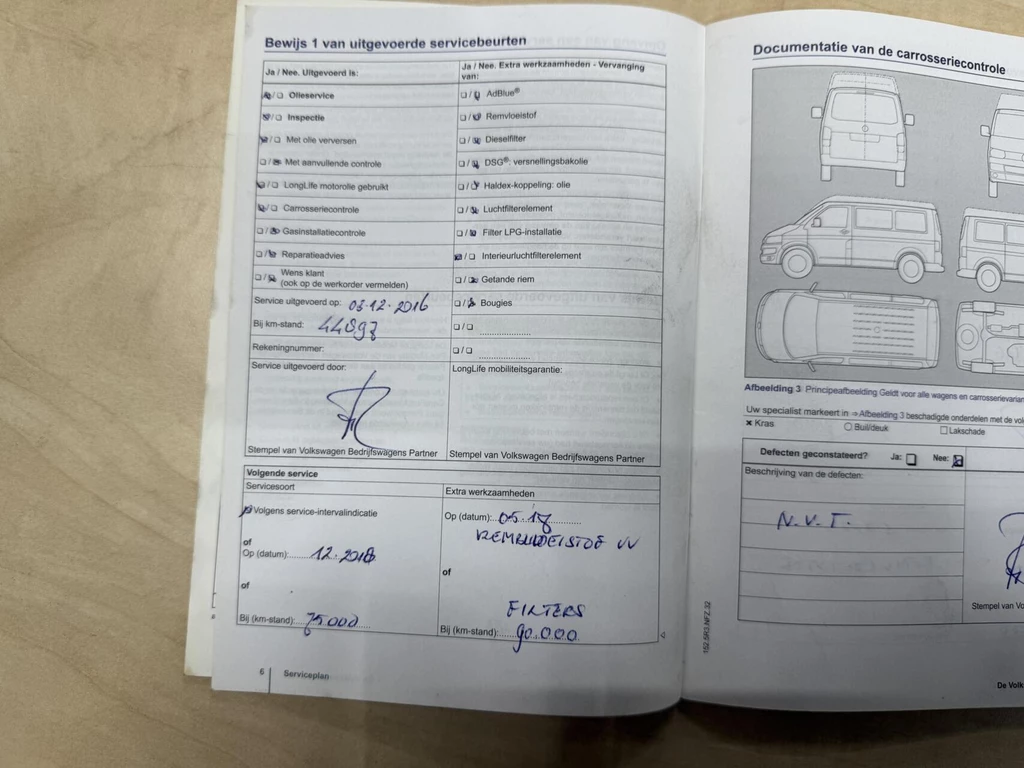 Bewijs 1 van uitgevoerde servicebeurten
Ja / Nee. Uitgevoerd is:
Olieservice
Inspectie
Met olie verversen
Met aanvullende controle
LongLife motorolie gebruikt
Carrosseriecontrole
Gasinstallatiecontrole
Reparatieadvies
Wens klant
(ook op de werkorder vermelden)
Service uitgevoerd op: 03.12.2016
Bij km-stand: 44893
Rekeningnummer:
Service uitgevoerd door:
Stempel van Volkswagen Bedrijfswagens Partner
Ja / Nee. Extra werkzaamheden - Vervanging
van:
AdBlue®
Remvloeistof
Dieselfilter
DSG®: versnellingsbakolie
Haldex-koppeling: olie
Luchtfilterelement
Filter LPG-installatie
Interieurluchtfilterelement
Getande riem
Bougies
LongLife mobiliteitsgarantie:
Stempel van Volkswagen Bedrijfswagens Partner
Volgende service
Servicesoort
Volgens service-intervalindicatie
of
Op (datum): 12.2018
of
Bij (km-stand): 75.000
Extra werkzaamheden
Op (datum): 05.18
of
FILTERS
Bij (km-stand): 90.000
6 Serviceplan
Documentatie van de carrosseriecontrole
Afbeelding 3 Principeafbeelding Geldt voor alle wagens en carrosserievarian
Uw specialist markeert in ⇒Afbeelding 3 beschadigde onderdelen met de vol
× Kras
Buil/deuk
Lakschade
Defecten geconstateerd? Ja: Nee:
Beschrijving van de defecten:
N.V.T.
Stempel van Vo
152.5R3.NFZ.32
De Volk